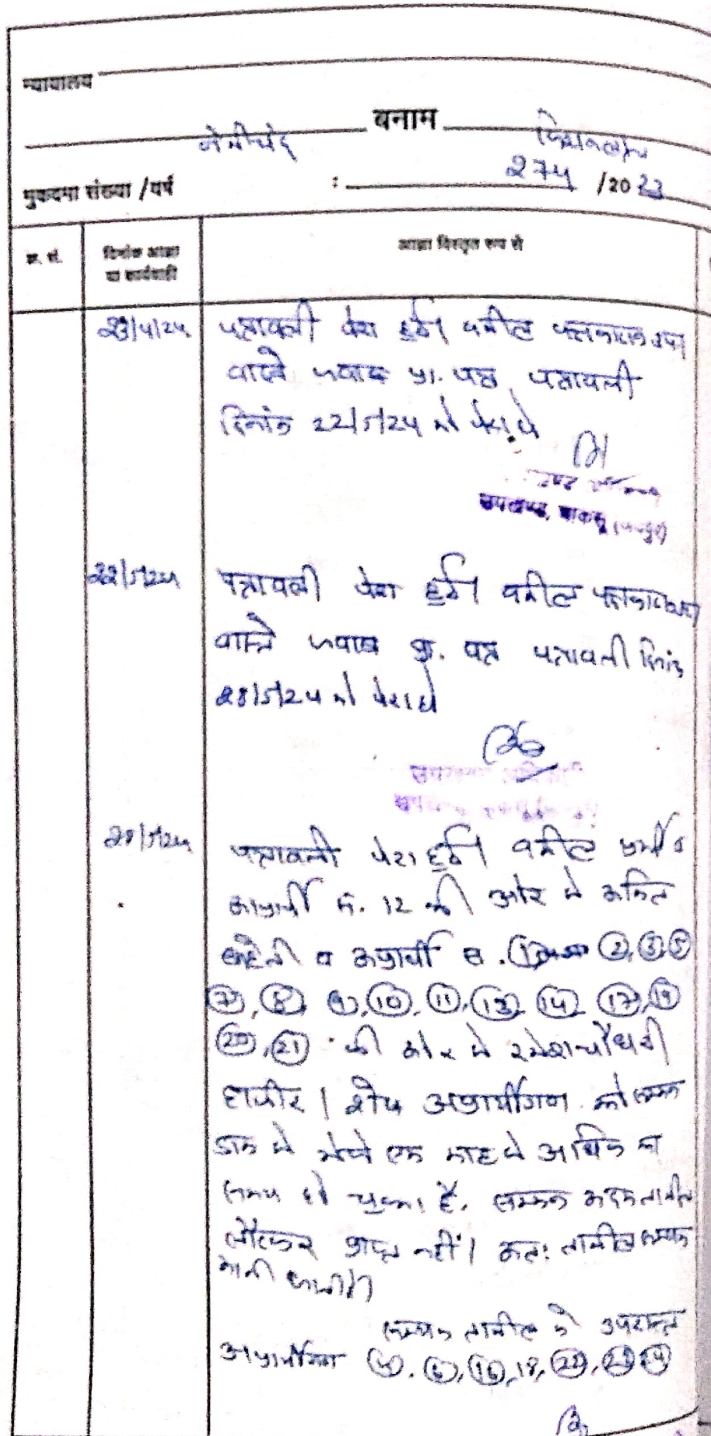 न्यायालय
बनाम
नेमीचंद
किशनलाल
मुकदमा संख्या /वर्ष : 274 /2023
क्र. सं. दिनांक आज्ञा या कार्यवाही आज्ञा विस्तृत रूप से
23/4/24 पत्रावली पेश हुई। वकील
वास्ते जवाब प्रा. पत्र पत्रावली
दिनांक 22/5/24 को पेश हो
उपखण्ड, चाकसू (जयपुर)
22/5/24 पत्रावली पेश हुई। वकील
वास्ते जवाब प्रा. पत्र पत्रावली दिनांक
28/5/24 को पेश हो
उपखण्ड अधिकारी
28/5/24 पत्रावली पेश हुई। वकील प्रार्थी व
अप्रार्थी सं. 12 की ओर से अमित
व अप्रार्थी स. 1 2, 3, 5
7, 8, 9, 10, 11, 13, 14, 17, 19
20, 21 की ओर से रमेश चौधरी
हाजीर। शेष अप्रार्थीगण को सम्मन
डाक से भेजे एक माह से अधिक का
समय हो चुका है, सम्मन अदमतामील
लौटकर प्राप्त नहीं। अतः तामील सम्यक
मानी जाती है।
सम्यक तामील के उपरान्त
अप्रार्थीगण 4, 6, 16, 18, 22, 23, 24